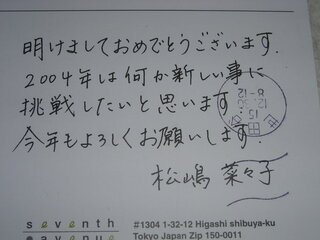 明けましておめでとうございます.
2004年は何か新しい事に
挑戦したいと思います.
今年もよろしくお願いします.
松嶋 菜々子
8-12
15
seventh
avenue
#1304 1-32-12 Higashi shibuya-ku
Tokyo Japan Zip 150-0011